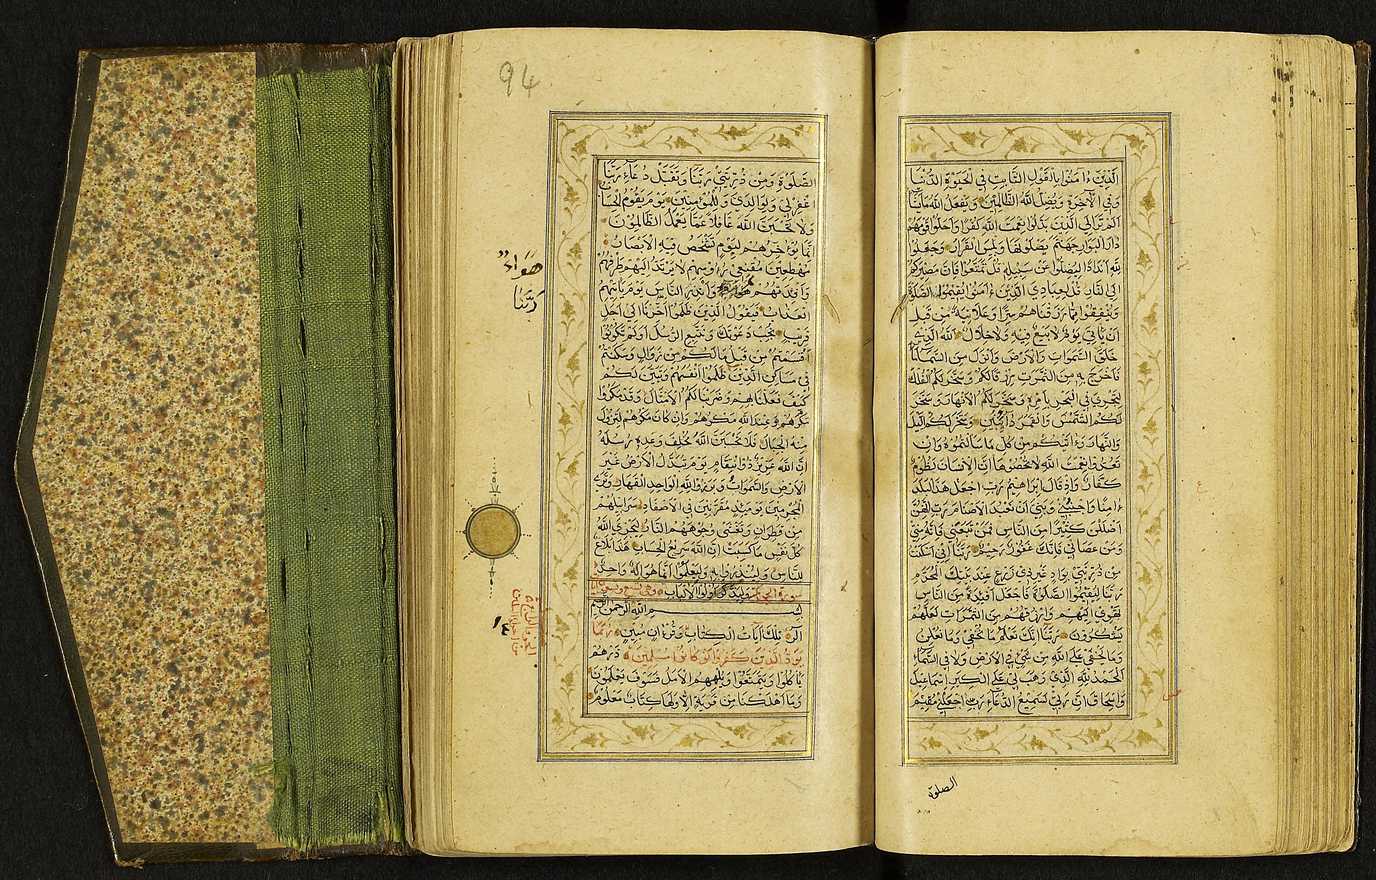 الذين ءامنوا بالقول الثابت في الحيوة الدنيا
وفي الآخرة ويضل الله الظالمين ويفعل الله ما يشاء
ألم تر إلى الذين بدلوا نعمت الله كفرا وأحلوا قومهم
دار البوار جهنم يصلونها وبئس القرار وجعلوا
لله أندادا ليضلوا عن سبيله قل تمتعوا فإن مصيركم
إلى النار قل لعبادي الذين ءامنوا يقيموا الصلوة
وينفقوا مما رزقناهم سرا وعلانية من قبل
أن يأتي يوم لا بيع فيه ولا خلال الله الذي
خلق السموات والأرض وأنزل من السماء ماء
فأخرج به من الثمرات رزقا لكم وسخر لكم الفلك
لتجري في البحر بأمره وسخر لكم الأنهار وسخر
لكم الشمس والقمر دائبين وسخر لكم الليل
والنهار وءاتيكم من كل ما سألتموه وإن
تعدوا نعمت الله لا تحصوها إن الإنسان لظلوم
كفار وإذ قال إبراهيم رب اجعل هذا البلد
ءامنا واجنبني وبني أن نعبد الأصنام رب إنهن
أضللن كثيرا من الناس فمن تبعني فإنه مني
ومن عصاني فإنك غفور رحيم ربنا إني أسكنت
من ذريتي بواد غير ذي زرع عند بيتك المحرم
ربنا ليقيموا الصلوة فاجعل أفئدة من الناس
تهوي إليهم وارزقهم من الثمرات لعلهم
يشكرون ربنا إنك تعلم ما نخفي وما نعلن
وما يخفى على الله من شيء في الأرض ولا في السماء
الحمد لله الذي وهب لي على الكبر إسماعيل
وإسحاق إن ربي لسميع الدعاء رب اجعلني مقيم
الصلوة
94
الصلوة ومن ذريتي ربنا وتقبل دعاء ربنا
اغفر لي ولوالدي وللمؤمنين يوم يقوم الحساب
ولا تحسبن الله غافلا عما يعمل الظالمون
إنما يؤخرهم ليوم تشخص فيه الأبصار
مهطعين مقنعي رءوسهم لا يرتد إليهم طرفهم
وأفئدتهم هواء وأنذر الناس يوم يأتيهم
هواء
العذاب فيقول الذين ظلموا ربنا أخرنا إلى أجل
ربنا
قريب نجب دعوتك ونتبع الرسل أولم تكونوا
أقسمتم من قبل ما لكم من زوال وسكنتم
في مساكن الذين ظلموا أنفسهم وتبين لكم
كيف فعلنا بهم وضربنا لكم الأمثال وقد مكروا
مكرهم وعند الله مكرهم وإن كان مكرهم لتزول
منه الجبال فلا تحسبن الله مخلف وعده رسله
إن الله عزيز ذو انتقام يوم تبدل الأرض غير
الأرض والسموات وبرزوا لله الواحد القهار وترى
المجرمين يومئذ مقرنين في الأصفاد سرابيلهم
من قطران وتغشى وجوههم النار ليجزي الله
كل نفس ما كسبت إن الله سريع الحساب هذا بلاغ
للناس ولينذروا به وليعلموا أنما هو إله واحد
سورة الحجر وليذكر أولوا الألباب
بسم الله الرحمن الرحيم
الر تلك آيات الكتاب وقرءان مبين ربما
يود الذين كفروا لو كانوا مسلمين ذرهم
يأكلوا ويتمتعوا ويلههم الأمل فسوف يعلمون
وما أهلكنا من قرية إلا ولها كتاب معلوم
١٤